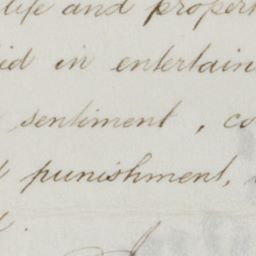 life and proper
id in entertain
sentiment, co
punishment,